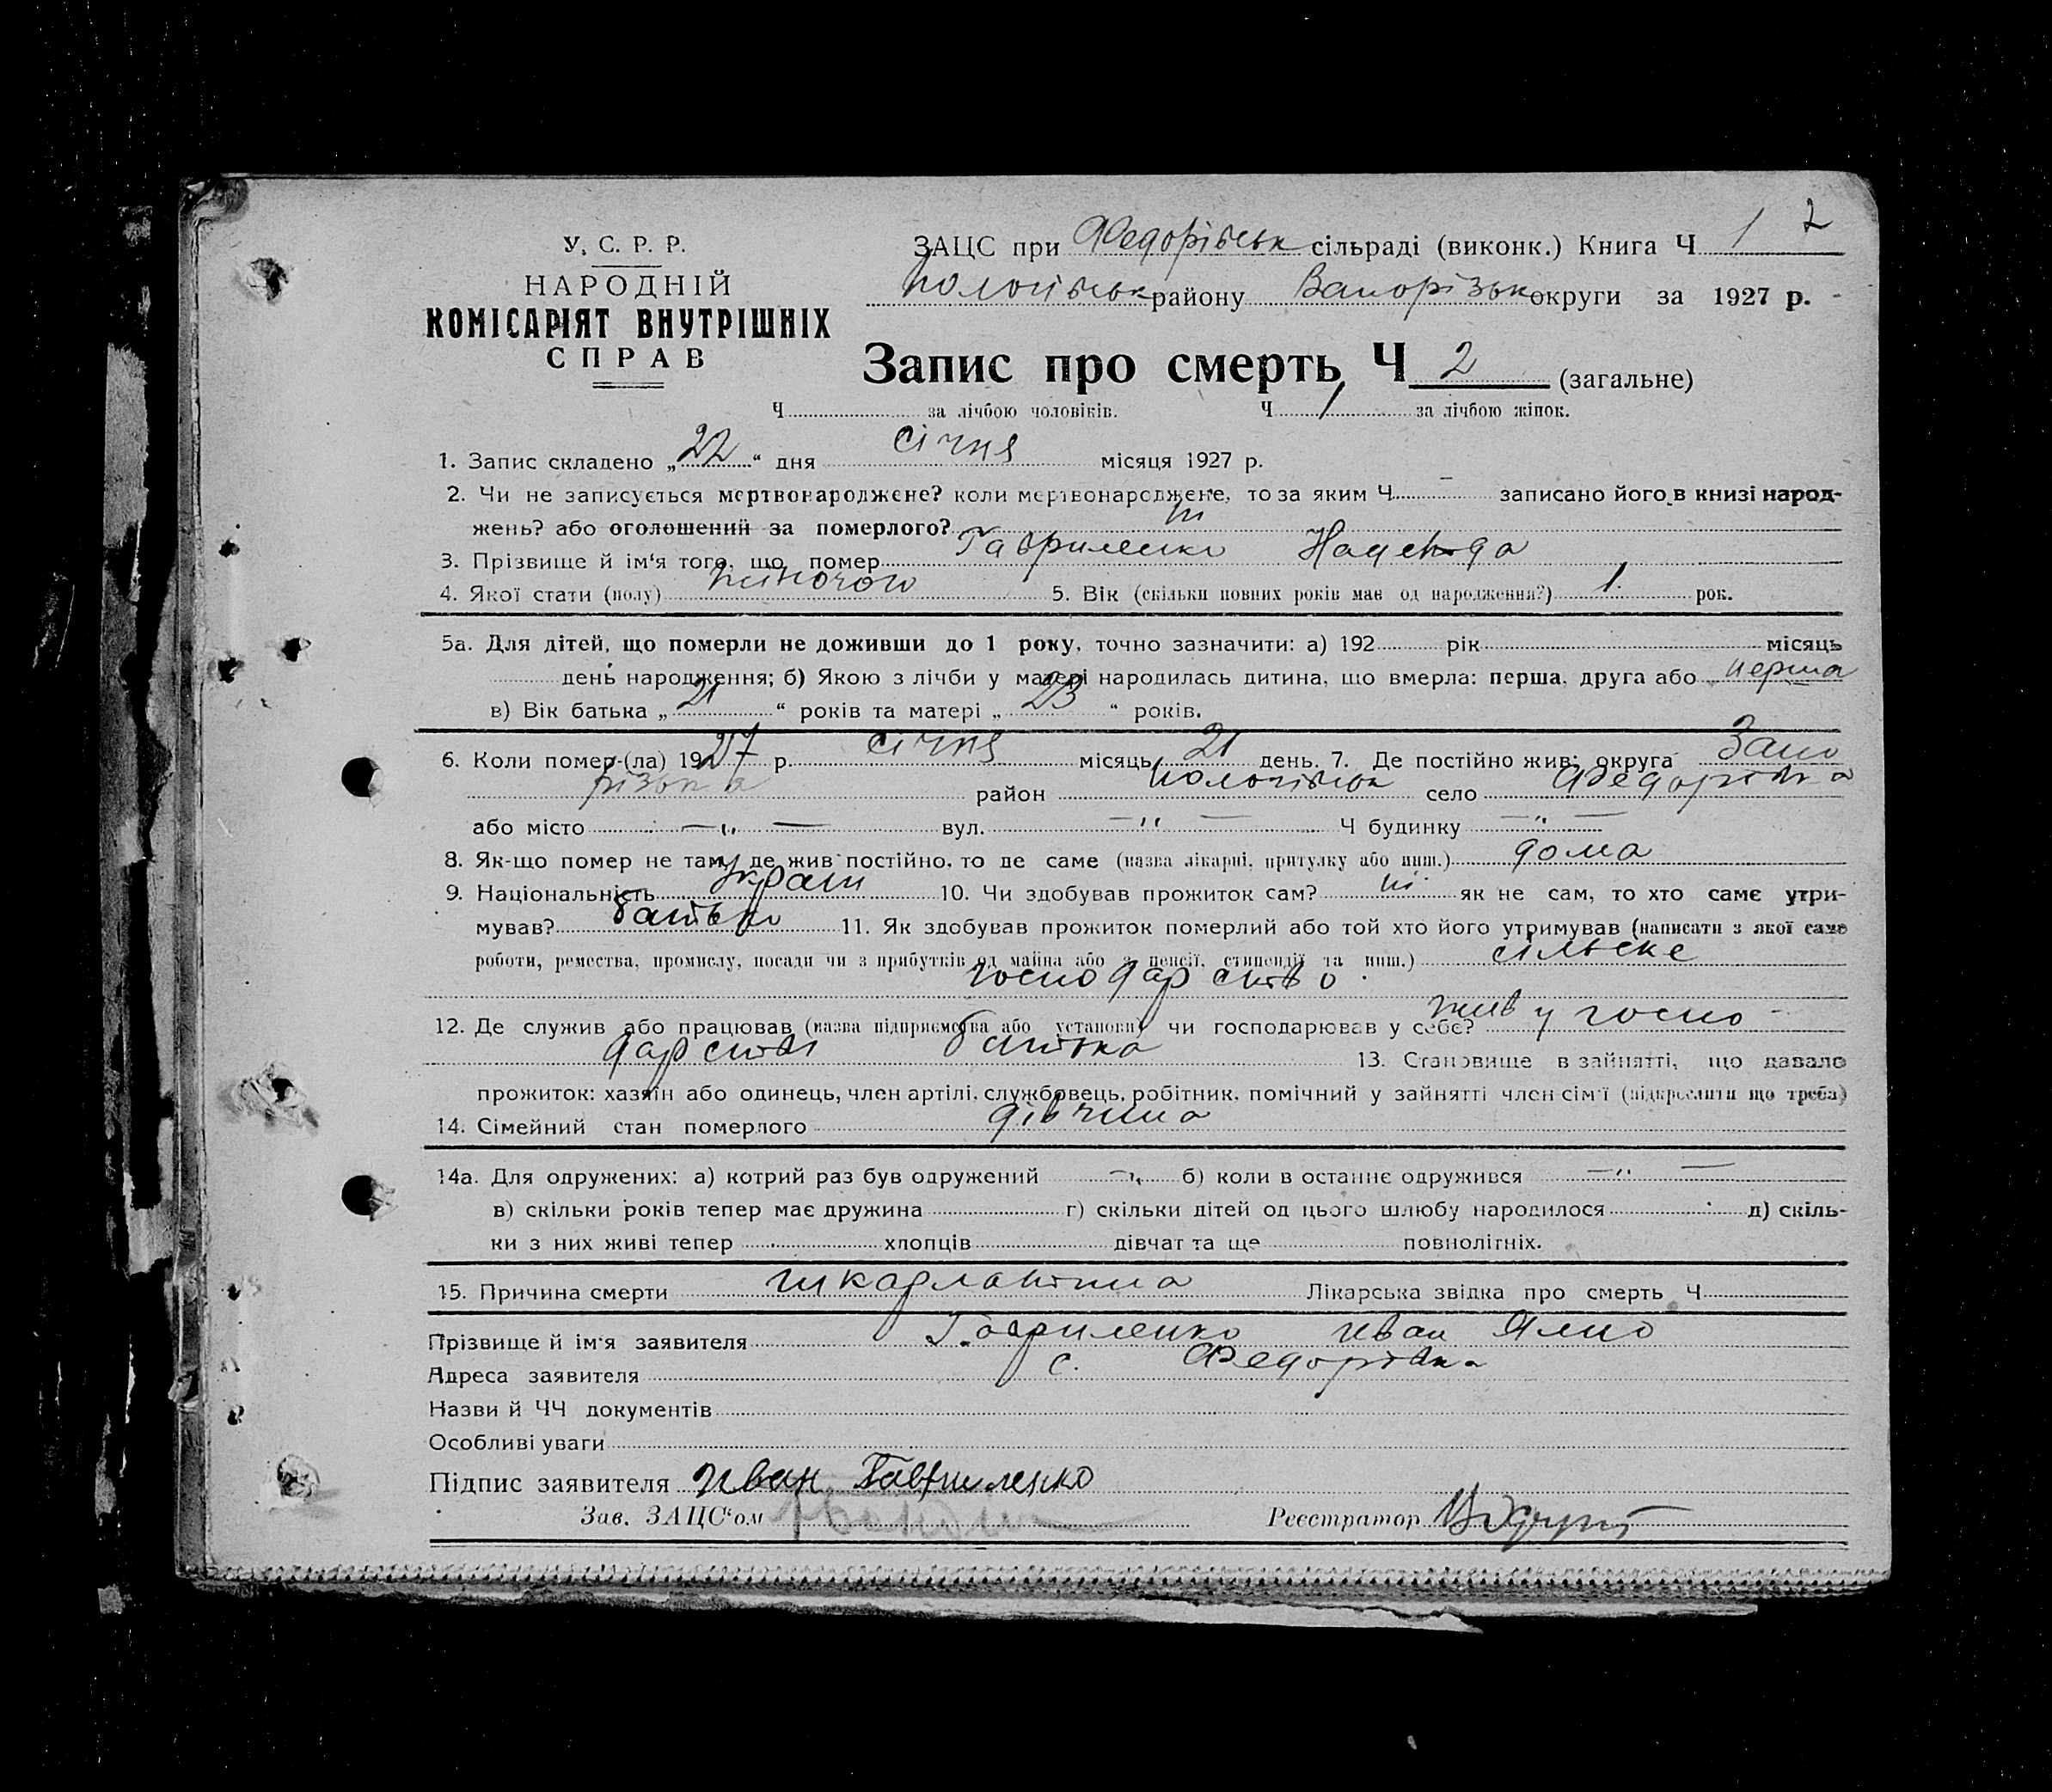 У. С. Р. Р.
НАРОДНІЙ
КОМІСАРІЯТ ВНУТРІШНІХ
СПРАВ
ЗАЦС при Федорівськ сільраді (виконк.) Книга Ч 1 2
Пологівськ району Запорізьк округи за 1927 р.
Запис про смерть Ч 2 (загальне)
Ч за лічбою чоловіків. Ч 1 за лічбою жінок.
1. Запис складено „22“ дня січня місяця 1927 р.
2. Чи не записується мертвонароджене? коли мертвонароджене, то за яким Ч - записано його в книзі народ-
жень? або оголошений за померлого? ні
3. Прізвище й ім'я того, що помер Гавриленко Надежда
4. Якої стати (полу) жіночої 5. Вік (скільки повних років має од народження?) 1 рок.
5а. Для дітей, що померли не доживши до 1 року, точно зазначити: а) 192 рік місяць
день народження; б) Якою з лічби у матері народилась дитина, що вмерла: перша, друга або перша
в) Вік батька „21“ років та матері „23“ років.
6. Коли помер-(ла) 1927 р. січня місяць 21 день. 7. Де постійно жив: округа Запо
різька район Пологівськ село Федорівка
або місто —„— вул. —"— Ч будинку —"—
8. Як-що помер не там, де жив постійно, то де саме (назва лікарні, притулку або инш.) дома
9. Національність україн 10. Чи здобував прожиток сам? ні як не сам, то хто саме утри-
мував? батько 11. Як здобував прожиток померлий або той хто його утримував (написати з якої саме
роботи, ремества, промислу, посади чи з прибутків од майна або з пенсії, стипендії та инш.) сільске
господарство
12. Де служив або працював (назва підприємства або установи) чи господарював у себе? жив у госпо-
дарстві батька 13. Становище в зайнятті, що давало
прожиток: хазяїн або одинець, член артілі, службовець, робітник, помічний у зайнятті член сім'ї (підкреслити що треба)
14. Сімейний стан померлого дівчина
14а. Для одружених: а) котрий раз був одружений —„ б) коли в останнє одружився —"—
в) скільки років тепер має дружина г) скільки дітей од цього шлюбу народилося д) скіль-
ки з них живі тепер хлопців дівчат та ще повнолітніх.
15. Причина смерти шкарлантина Лікарська звідка про смерть Ч
Прізвище й ім'я заявителя Гавриленко Иван
Адреса заявителя с. Федорівка
Назви й ЧЧ документів
Особливі уваги
Підпис заявителя Иван Гавриленко
Зав. ЗАЦС'ом
Реєстратор